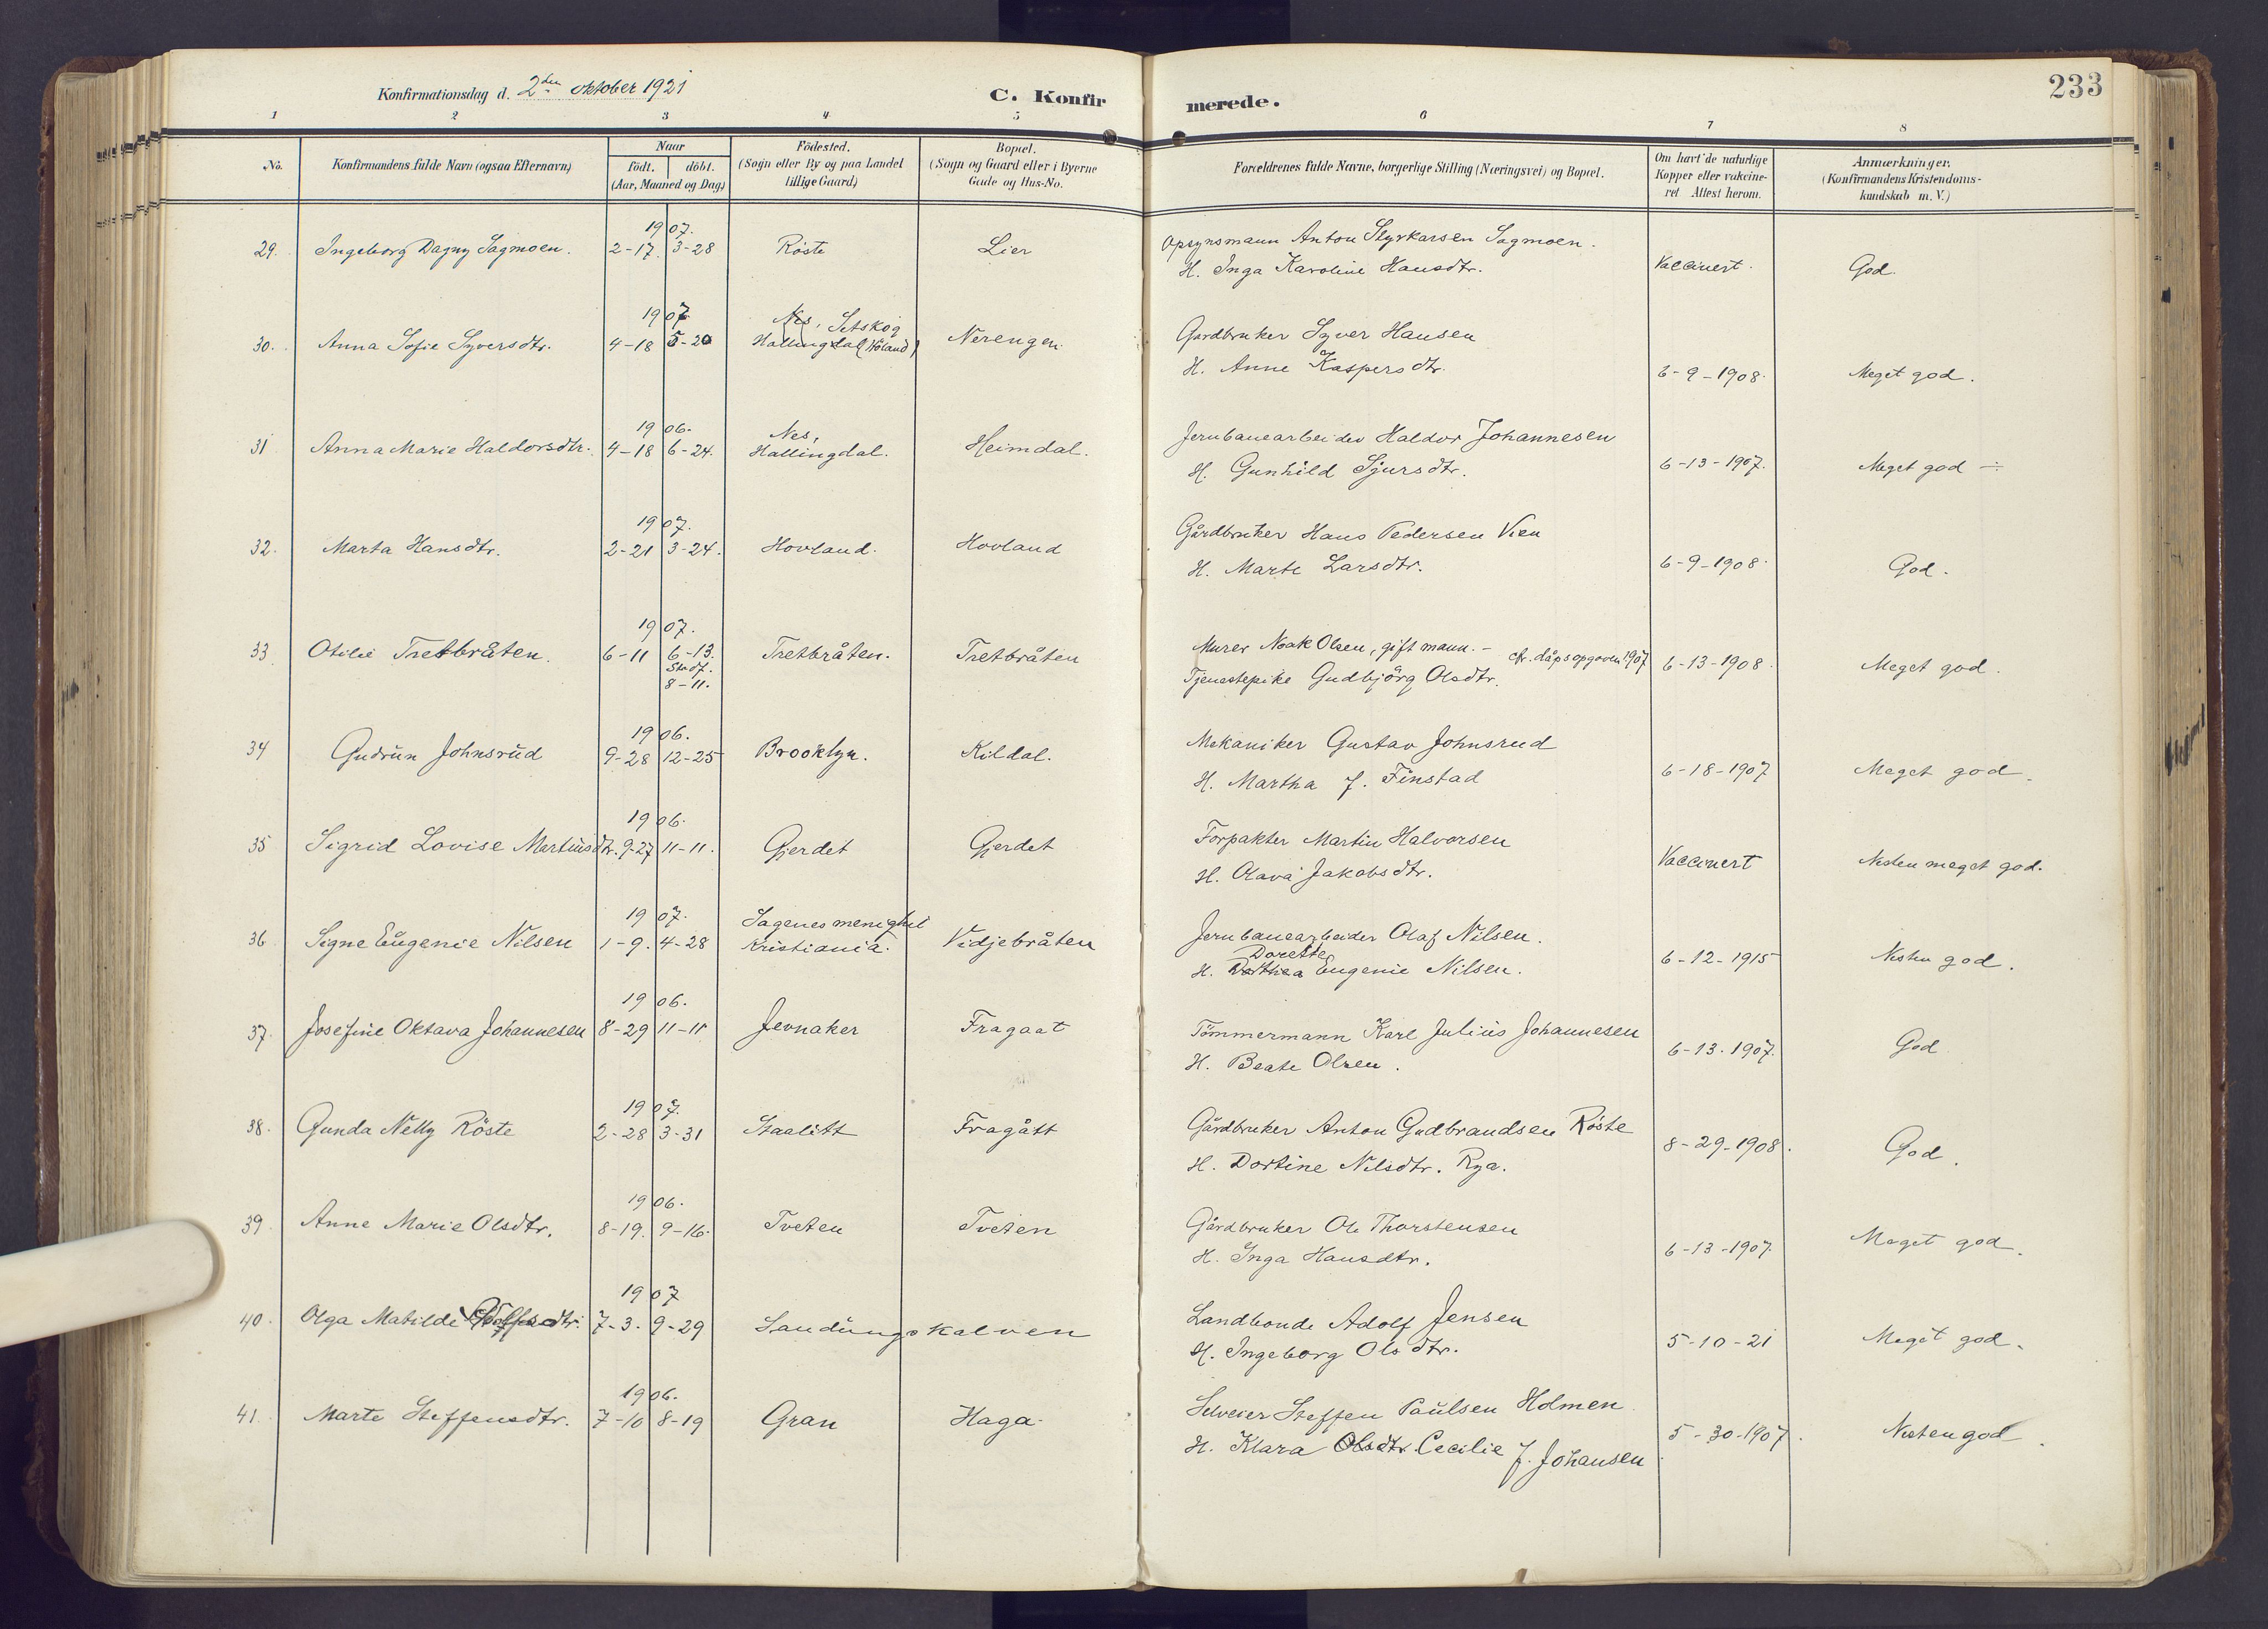 Konfirmationsdag d. 2den oktober 1921
C. Konfirmerede.
233
1 2 3 4 5 6 7 8
No. Konfirmandens fulde Navn (ogsaa Efternavn) Naar födt. döbt. (Aar, Maaned og Dag) Födested. (Sogn eller By og paa Landet tillige Gaard) Bopæl. (Sogn og Gaard eller i Byerne Gade og Hus-No. Forældrenes fulde Navne, borgerlige Stilling (Næringsvei) og Bopæl. Om havt de naturlige Kopper eller vakcineret Attest herom. Anmærkninger. (Konfirmandens Kristendomskundskab m. V.)
1907.
29. Ingeborg Dagny Sagmoen. 2-17. 3-28 Röste Lier Opsynsmann Anton Styrkarsen Sagmoen.
H. Inga Karoline Hansdtr. Vaccinert. God.
1907
30. Anna Sofie Syversdtr. 4-18 5-20 Nes, Setskog
Hallingdal (Höland) Nerengen Gardbruker Syver Hansen
H. Anne Kaspersdtr. 6-9-1908. Meget god.
1906.
31 Anna Marie Haldorsdtr. 4-18 6-24. Nes,
Hallingdal. Heimdal. Jernbanearbeider Haldor Johannesen
H. Gunhild Sjursdtr. 6-13-1907. Meget god ÷
1907.
32. Marta Hansdtr. 2-21 3-24. Hovland. Hovland Gårdbruker Hans Pedersen Vien
H. Marte Larsdtr. 6-9-1908. God.
1907.
33 Otilie Tretbråten. 6-11 6-13. Tretbråten. Tretbråten Murer Noak Olsen, gift mann. -
Stadf.
8-11.
cfr. dåpsopgaven 1907
Tjenestepike Gudbjörg Olsdtr. 6-13-1908. Meget god.
1906.
34 Gudrun Johnsrud 9-28 12-25 Brooklyn. Kildal. Mekaniker Gustav Johnsrud
H. Martha J. Finstad 6-18-1907 Meget god.
1906.
35 Sigrid Lovise Martinsdtr. 9-27 11-11. Gjerdet Gjerdet Forpakter Martin Halvorsen
H. Olava Jakobsdtr. Vaccinert Nesten meget god.
1907.
36 Signe Eugenie Nilsen 1-9. 4-28 Sagenes menighet
Kristiania. Vidjebråten Jernbanearbeider Olaf Nilsen.
Dorette
H. Dorthea Eugenie Nilsen. 6-12-1915 Nesten god.
1906.
37. Josefine Oktava Johannesen 8-29 11-11 Jevnaker Fragaat Tömmermann Karl Julius Johannesen
H. Beate Olsen. 6-13.1907. God
1907.
38. Gunda Nelly Röste 2-28 3-31 Staalitt Fragått Gårdbruker Anton Gudbrandsen Röste
H. Dortine Nilsdtr. Rya. 8-29-1908. God.
1906.
39 Anne Marie Olsdtr. 8-19. 9-16. Tveten Tveten Gårdbruker Ole Thorstensen
H. Inga Hansdtr. 6-13-1907. Meget god.
1907
40. Olga Matilde 7-3. 9-29 Sandungskalven Landbonde Adolf Jensen
H. Ingeborg Olsdtr. 5-10-21 Meget god.
1906.
41. Marte Steffensdtr. 7-10 8-19 Gran Haga Selveier Steffen Paulsen Holmen
H. Klara Olsdtr. Cecilie J. Johansen 5-30-1907. Nesten god.